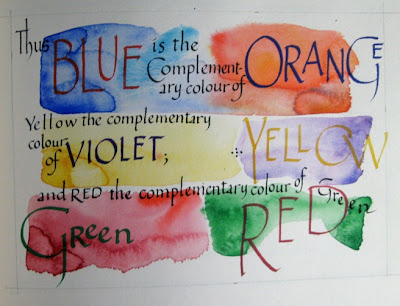 Thus BLUE is the Complement-
ary colour of ORANGE
Yellow the complementary
colour
of VIOLET; YELLOW
and RED the complementary colour of Green
Green RED